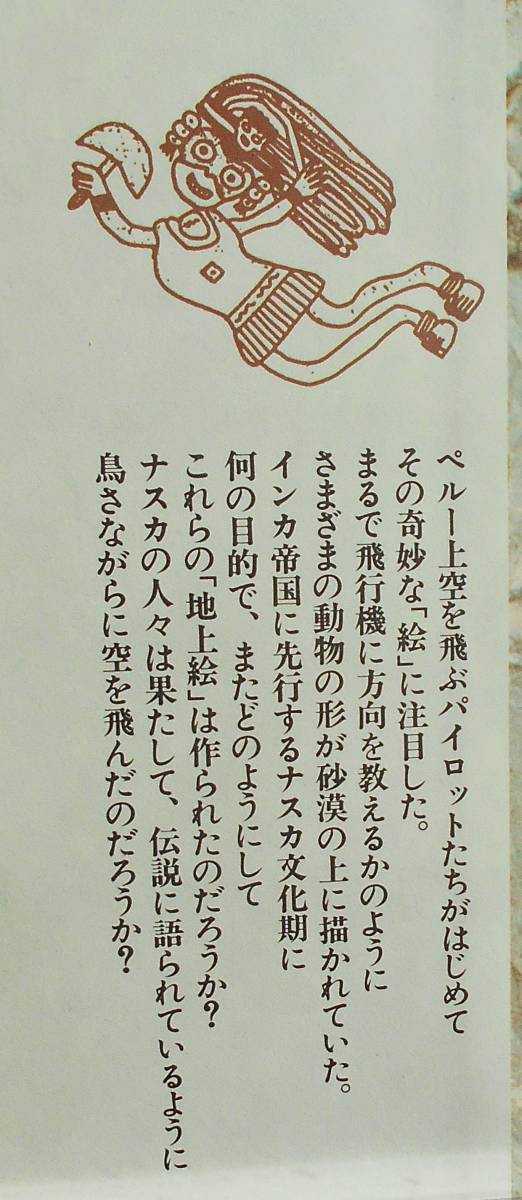 ペルー上空を飛ぶパイロットたちがはじめて
その奇妙な「絵」に注目した。
まるで飛行機に方向を教えるかのように
さまざまの動物の形が砂漠の上に描かれていた。
インカ帝国に先行するナスカ文化期に
何の目的で、またどのようにして
これらの「地上絵」は作られたのだろうか？
ナスカの人々は果たして、伝説に語られているように
鳥さながらに空を飛んだのだろうか？